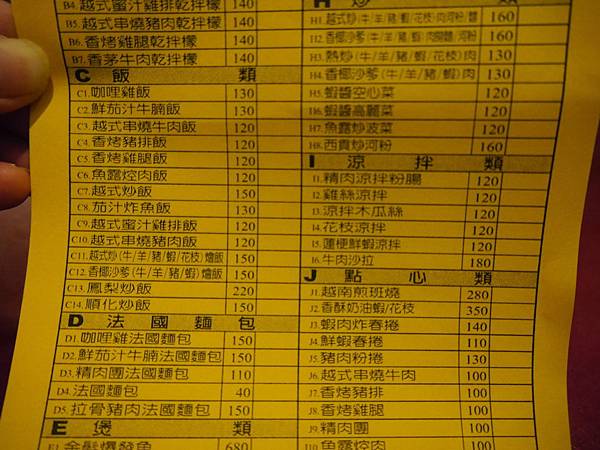 B4.越式蜜汁雞排乾拌檬 140
B5.越式串燒豬肉乾拌檬 140
B6.香烤雞腿乾拌檬 140
B7.香茅牛肉乾拌檬 140
C 飯 類
C1.咖哩雞飯 130
C2.鮮茄汁牛腩飯 130
C3.越式串燒牛肉飯 120
C4.香烤豬排飯 120
C5.香烤雞腿飯 120
C6.魚露焢肉飯 120
C7.越式炒飯 150
C8.茄汁炸魚飯 130
C9.越式蜜汁雞排飯 120
C10.越式串燒豬肉飯 120
C11.越式炒(牛/羊/豬/蝦/花枝)燴飯 150
C12.香椰沙爹(牛/羊/豬/蝦)燴飯 150
C13.鳳梨炒飯 220
C14.順化炒飯 150
D 法國麵包
D1.咖哩雞法國麵包 150
D2.鮮茄汁牛腩法國麵包 150
D3.精肉團法國麵包 110
D4.法國麵包 40
D5.拉骨豬肉法國麵包 150
E 煲 類
680
H 炒 類
H1.越式炒(牛/羊/豬/蝦/花枝/肉)河粉/麵 160
H2.香椰沙爹(牛/羊/豬/蝦/肉) 160
H3.熱炒(牛/羊/豬/蝦/花枝)肉 130
H4.香椰沙爹(牛/羊/豬/蝦)肉 130
H5.蝦醬空心菜 120
H6.蝦醬高麗菜 120
H7.魚露炒波菜 120
H8.西貢炒河粉 160
I 涼 拌 類
I1.精肉涼拌粉腸 120
I2.雞絲涼拌 120
I3.涼拌木瓜絲 120
I4.花枝涼拌 120
I5.蓮梗鮮蝦涼拌 120
I6.牛肉沙拉 180
J 點 心 類
J1.越南煎班燒 280
J2.香酥奶油蝦/花枝 350
J3.蝦肉炸春捲 140
J4.鮮蝦春捲 110
J5.豬肉粉捲 130
J6.越式串燒牛肉 100
J7.香烤豬排 100
J8.香烤雞腿 100
J9.精肉團 100
J10.魚露焢肉 100